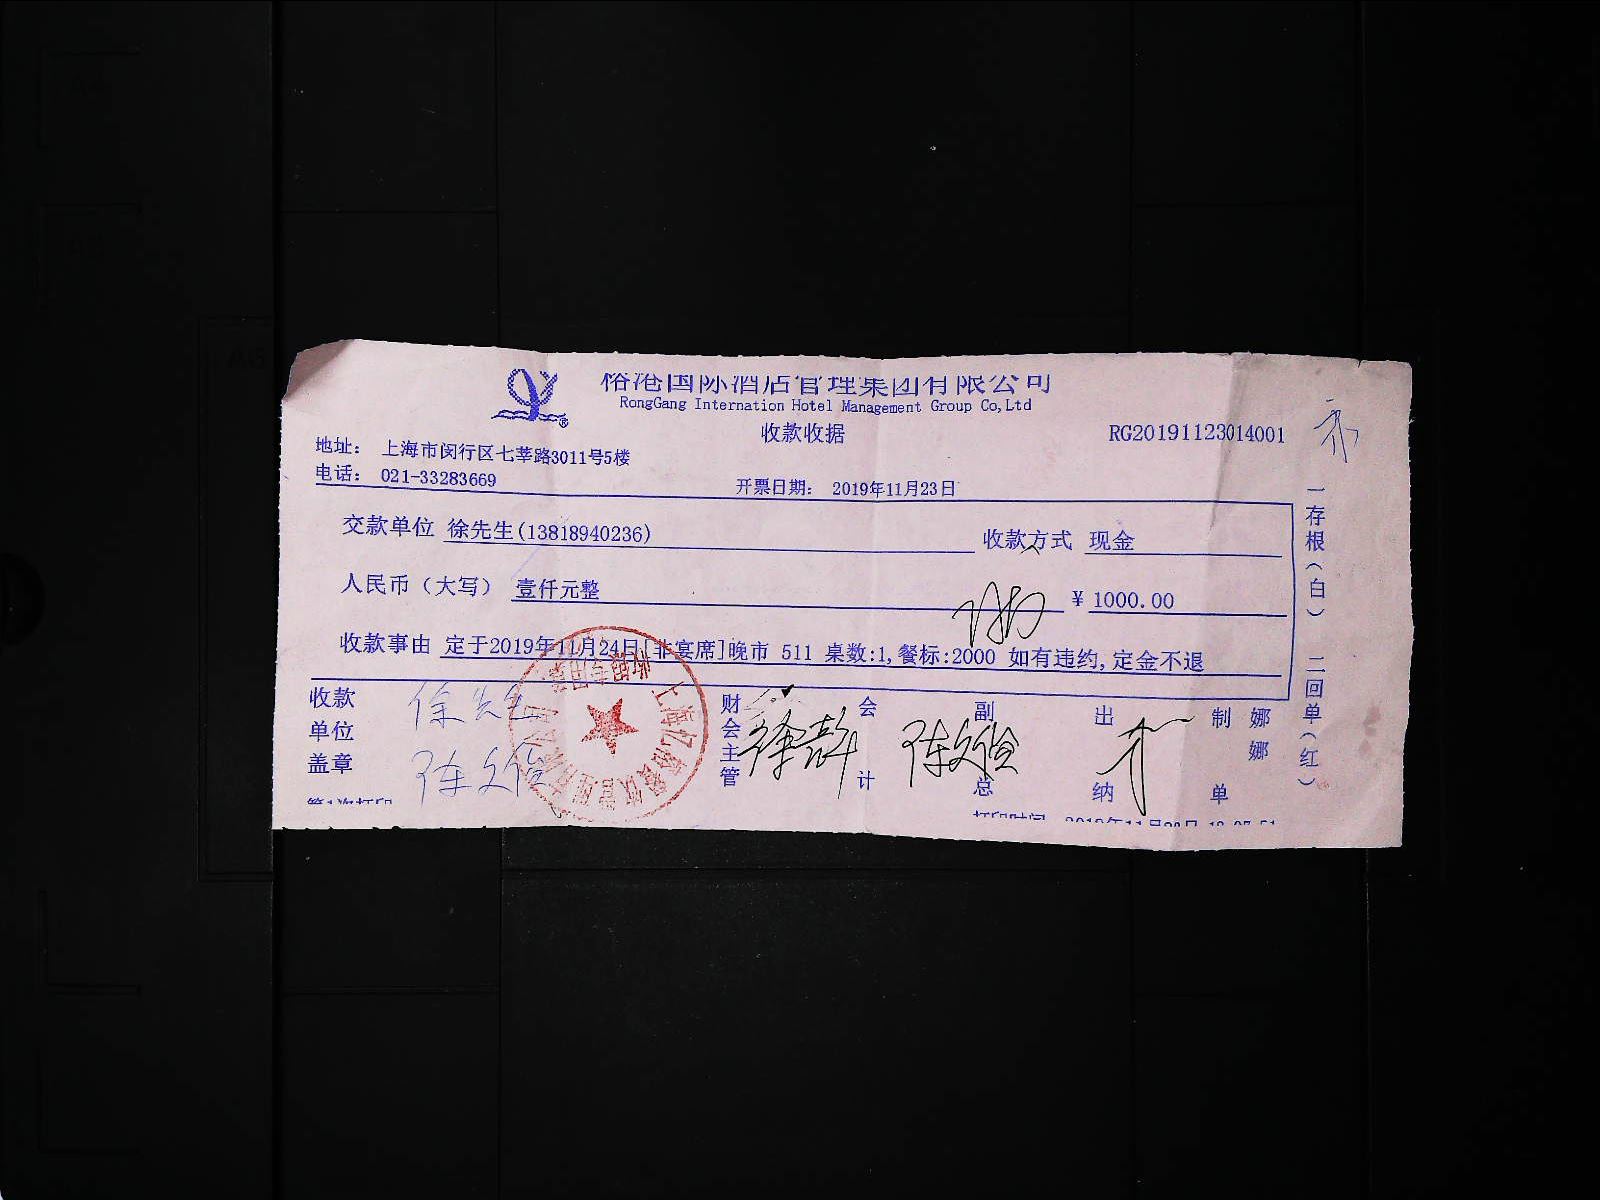 裕港国际酒店管理集团有限公司
RongGang Internation Hotel Management Group Co,Ltd
收款收据
RG20191123014001
地址： 上海市闵行区七莘路3011号5楼
电话： 021-33283669
开票日期： 2019年11月23日
交款单位 徐先生(13818940236) 收款方式 现金
人民币（大写） 壹仟元整 ¥ 1000.00
收款事由 定于2019年11月24日[非宴席]晚市 511 桌数:1,餐标:2000 如有违约,定金不退
收款单位盖章 徐先生 陈文俊
财会主管
会计
副总
出纳
制单 娜娜
第1次打印
打印时间
一存根（白） 二回单（红）